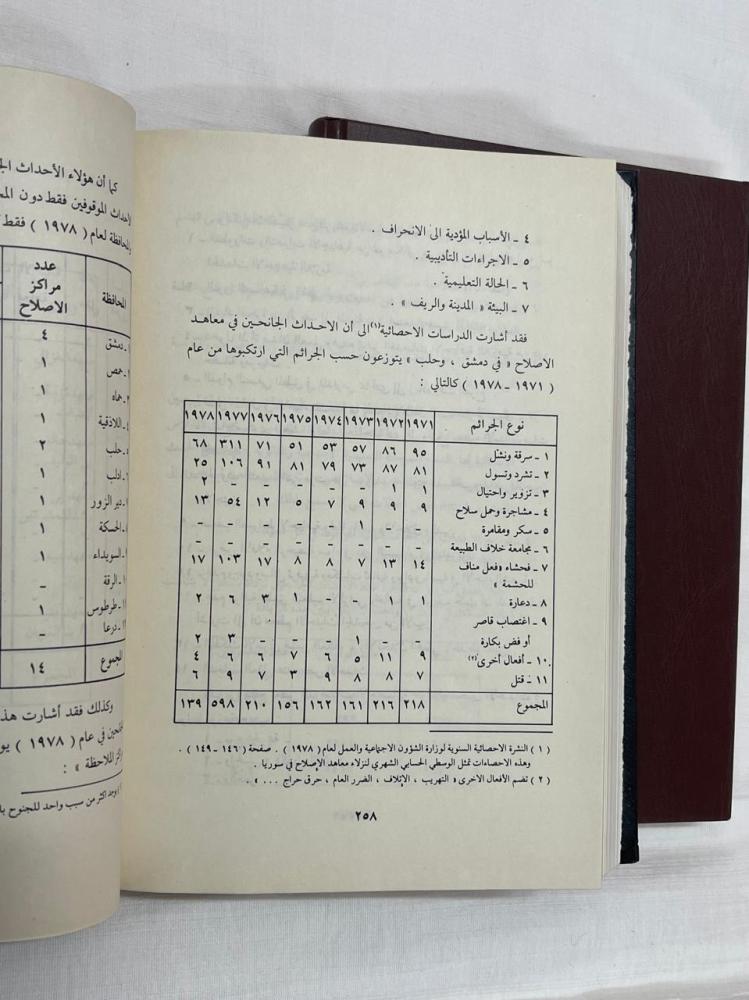 ٤ ـ الأسباب المؤدية الى الانحراف .
٥ ـ الاجراءات التأديبية .
٦ ـ الحالة التعليمية .
٧ ـ البيئة « المدينة والريف » .
فقد أشارت الدراسات الاحصائية(١) الى أن الاحداث الجانحين في معاهد
الاصلاح « في دمشق ، وحلب » يتوزعون حسب الجرائم التي ارتكبوها من عام
( ١٩٧١ - ١٩٧٨ ) كالتالي :
نوع الجرائم ١٩٧١ ١٩٧٢ ١٩٧٣ ١٩٧٤ ١٩٧٥ ١٩٧٦ ١٩٧٧ ١٩٧٨
١ ـ سرقة ونشل ٩٥ ٨٦ ٥٧ ٥٣ ٥١ ٧١ ٣١١ ٦٨
٢ ـ تشرد وتسول ٨١ ٨٧ ٧٣ ٧٩ ٨١ ٩١ ١٠٦ ٢٥
٣ ـ تزوير واحتيال ١ ١ - - - - - ٢
٤ ـ مشاجرة وحمل سلاح ٩ ٩ ٩ ٧ ٥ ١٢ ٥٤ ١٣
٥ ـ سكر ومقامرة - - ١ - - - - -
٦ ـ مجامعة خلاف الطبيعة - - - - - - - -
٧ ـ فحشاء «فعل مناف ١٤ ١٣ ٧ ٨ ٨ ١٧ ١٠٣ ١٧
للحشمة »
٨ ـ دعارة ١ ١ - - ١ ٣ ٦ ٢
٩ ـ اغتصاب قاصر
أو فض بكارة - - ١ - - - ٣ ٢
١٠ ـ أفعال أخرى(٢) ٩ ١١ ٥ ٦ ٧ ٦ ٦ ٤
١١ ـ قتل ٧ ٨ ٨ ٩ ٣ ٧ ٩ ٦
المجموع ٢١٨ ٢١٦ ١٦١ ١٦٢ ١٥٦ ٢١٠ ٥٩٨ ١٣٩
( ١ ) النشرة الاحصائية السنوية لوزارة الشؤون الاجتماعية والعمل لعام ( ١٩٧٨ ) . صفحة ( ١٤٦ - ١٤٩ ) .
وهذه الاحصاءات تمثل الوسطي الحسابي الشهري لنزلاء معاهد الإصلاح في سوريا .
( ٢ ) تضم الأفعال الأخرى « التهريب ، الإتلاف ، الضرر العام ، حرق حراج ... » .
٢٥٨
كما أن هؤلاء الأحداث
الاحداث الموقوفين فقط دون
والمحافظة لعام ( ١٩٧٨ ) فقط
المحافظة عدد
مراكز
الاصلاح
دمشق ٤
حمص ١
حماه ١
اللاذقية ١
حلب ٢
ادلب ١
دير الزور ١
الحسكة ١
السويداء ١
الرقة -
طرطوس ١
درعا -
المجموع ١٤
وكذلك فقد أشارت
في عام ( ١٩٧٨ )
الملاحظة » :
اكثر من سبب واحد للجنوح